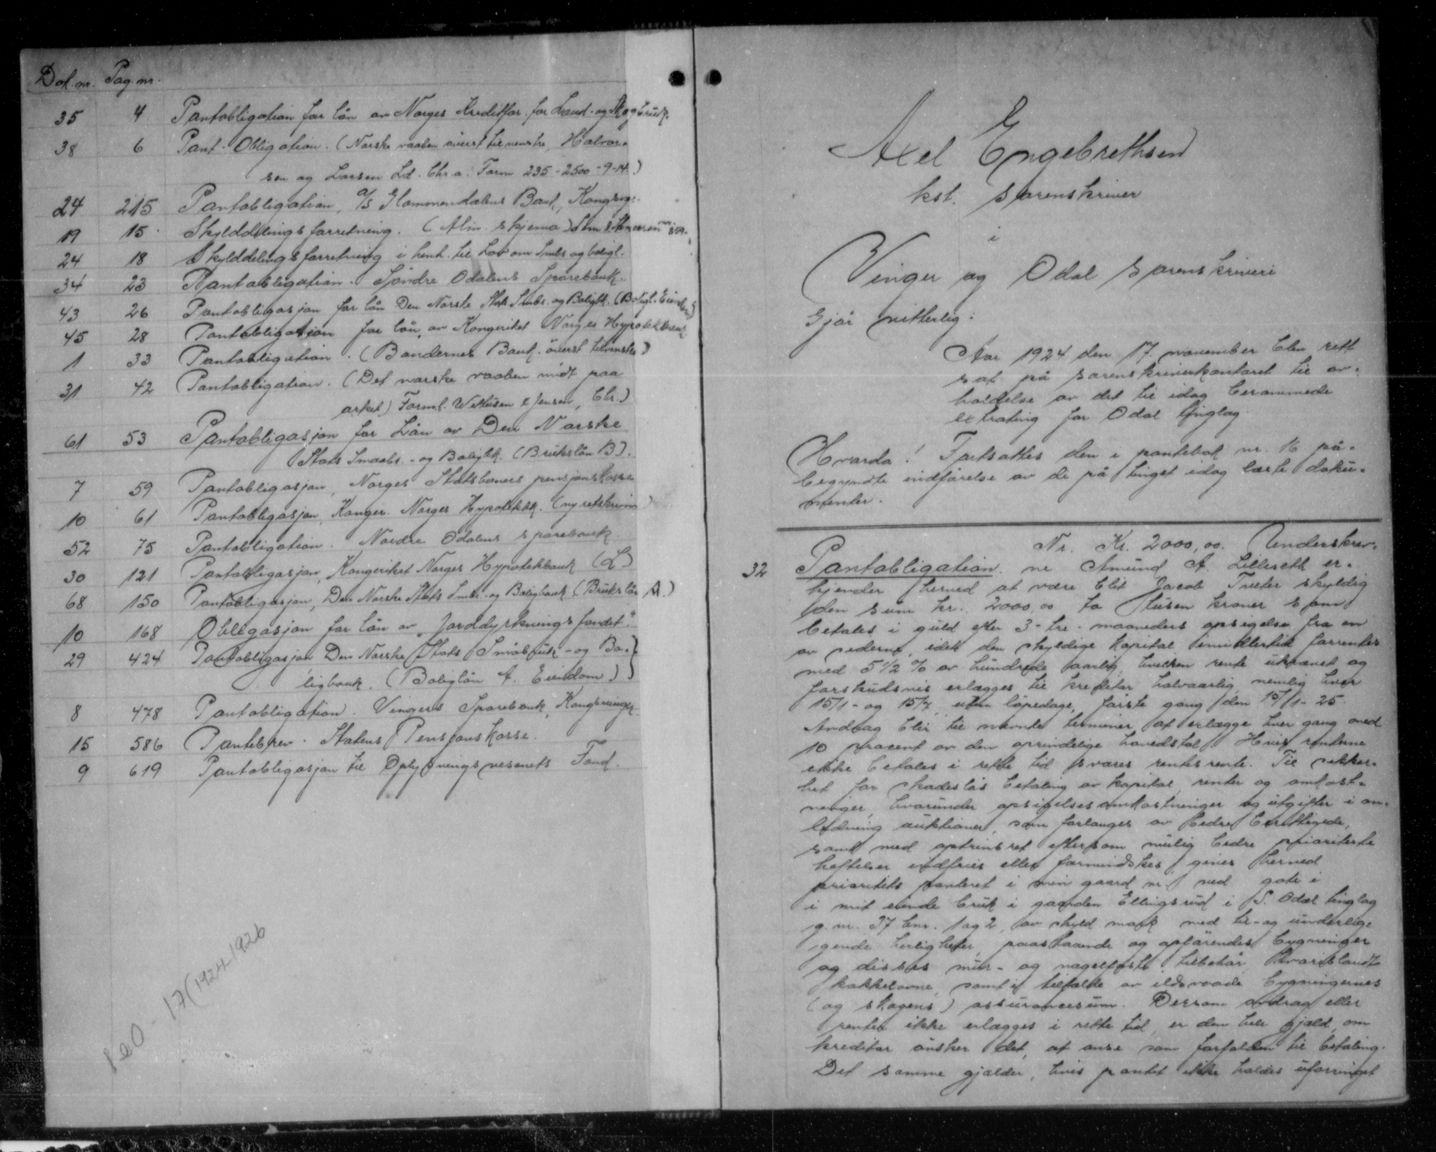 Dok.nr. Pag.nr.
35 4 Pantobligation for lån av Norges Kreditfor. for Land- og Skogbruk.
38 6 Pant-Obligation. (Norske vaaben øverst til venstre, Halvor-
sen og Larsen Ld. Chr.a. Form 235-2500-9-14.)
24 215 Pantobligation, A/S Glommendalens Bank, Kongsvgr.
19 15 Skylddelingsforretning. (Alm. skjema)
24 18 Skylddelingsforretning i henh. til Lov om Småbr. og boligl.
34 23 Pantobligation. Søndre Odalens Sparebank.
43 26 Pantobligasjon for lån Den Norske Stats Småbr. og Boligbk. (Boligl. Eiendom)
45 28 Pantobligation for lån av Kongeriket Norges Hypotekbank
1 33 Pantobligation. (Bøndernes Bank. øverst tilvenstre)
31 42 Pantobligation. (Det norske vaaben midt paa
arket) Forml. Wittusen & Jensen, Chr.)
61 53 Pantobligasjon for Lån av Den Norske
Stats Smaabr.- og Boligbk. (Brukslån B).
7 59 Pantobligasjon, Norges Statsbaners pensjonskasse
10 61 Pantobligasjon, Konger. Norges Hypotekbk. (ny rettskrivn.)
52 75 Pantobligation. Nordre Odalens sparebank.
30 121 Pantobligasjon, Kongeriket Norges Hypotekbank (L)
68 150 Pantobligasjon, Den Norske Stats Småbr. og Boligbank (Brukslån A.)
10 168 Obligasjon for lån av "Jorddyrkningsfondet."
29 424 Pantobligasjon Den Norske Stats Småbruk- og Bo-
ligbank. (Boliglån A. Eiendom)
8 478 Pantobligation. Vingers Sparebank, Kongsvinger
15 586 Pantebrev. Statens Pensjonskasse.
9 619 Pantobligasjon til Oplysningsvesenets Fond.
17 (1924-1926
Axel Engebrethsen
kst. sorenskriver
i
Vinger og Odal sorenskriveri
Gjør vitterlig:
Aar 1924 den 17 november blev rett
sat på sorenskriverkontoret til av-
holdelse av det til idag berammede
extrating for Odal tinglag.
Hvorda! Fortsattes den i pantebok nr. 16 på-
begynte indførelse av de på tinget idag læste doku-
menter.
32 Pantobligation. Nr. Kr. 2000,00. Underskrev-
ne Amund A. Lilleseth er-
kjender herved at være blit Jacob Fuller skyldig
den sum kr. 2000,00 to tusen kroner som
betales i guld efter 3-tre-maaneders opsigelse fra en
av siderne, idet den skyldige kapital imidlertid forrentes
med 5 1/2 % av hundrede aarlig, hvilken rente utregnet og
forskudsvis erlægges til kreditor halvaarlig nemlig hver
15/1- og 15/7 uten løpedage, første gang den 15/1-25.
Avdrag blir til nævnte terminer at erlægge hver gang med
10 procent av den oprindelige hovedstol. Hvis renterne
ikke betales i rette tid svares rentesrente. Til sikker-
het for skadesløs betaling av kapital, renter og omkost-
ninger, hvorunder opsigelsesomkostninger og utgifter i an-
ledning auktioner, som forlanges av bedre berettigede,
samt med optrinsret eftersom mulig bedre prioriterte
heftelser indfries eller formindskes, gives herved
prioritets panteret i min gaard nr. ved gate i
i mit eiende bruk i gaarden Ellingsrud i S. Odal tinglag
g.nr. 37 bnr. 1 og 2, av skyld mark med til- og underlig-
gende herligheter, paastaaende og opførendes bygninger
og disses mur- og nagelfaste tilbehør
kakkelovne, samt i tilfælde av ildsvaade bygningernes
(og skogens) assurancesum. Dersom avdrag eller
renter ikke erlægges i rette tid, er den hele gjæld, om
kreditor ønsker det, at anse som forfalden til betaling.
Det samme gjælder, hvis pantet ikke holdes uforringet